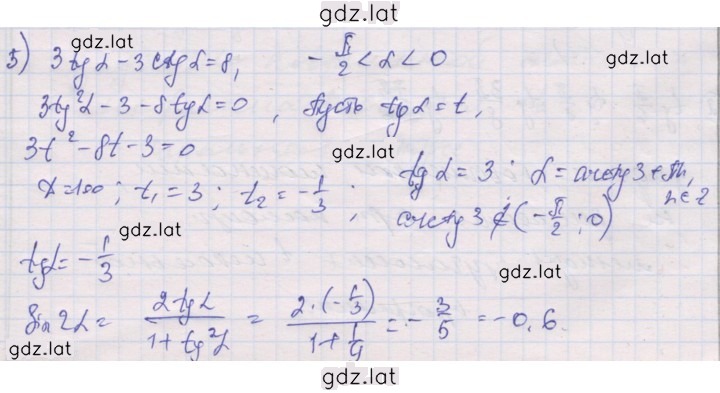 gdz.lat
gdz.lat
5) 3tgα - 3ctgα = 8, -π/2 < α < 0
gdz.lat
3tg²α - 3 - 8tgα = 0, Пусть tgα = t,
3t² - 8t - 3 = 0
gdz.lat
D = 100; t₁ = 3; t₂ = -1/3; tgα = 3; α = arctg3 + πn, n∈Z
arctg3 ∉ (-π/2; 0)
gdz.lat
tgα = -1/3
gdz.lat
sin2α = 2tgα/(1+tg²α) = 2·(-1/3)/(1+1/9) = -3/5 = -0,6.
gdz.lat
gdz.lat